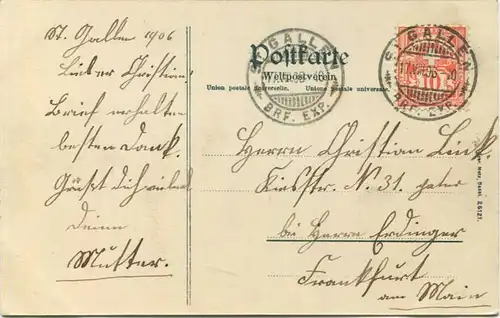 St. Gallen 1906
Lieber Christian!
Brief erhalten
besten Dank.
Grüsst Dich vielmal
Deine
Mutter.
Postkarte
Weltpostverein
Union postale universelle. Unione postale universale.
ST. GALLEN
BRF. EXP.
ST. GALLEN
BRF. EXP.
Herrn Christian Link.
N° 31.
bei Herrn Erdinger
Frankfurt
am Main